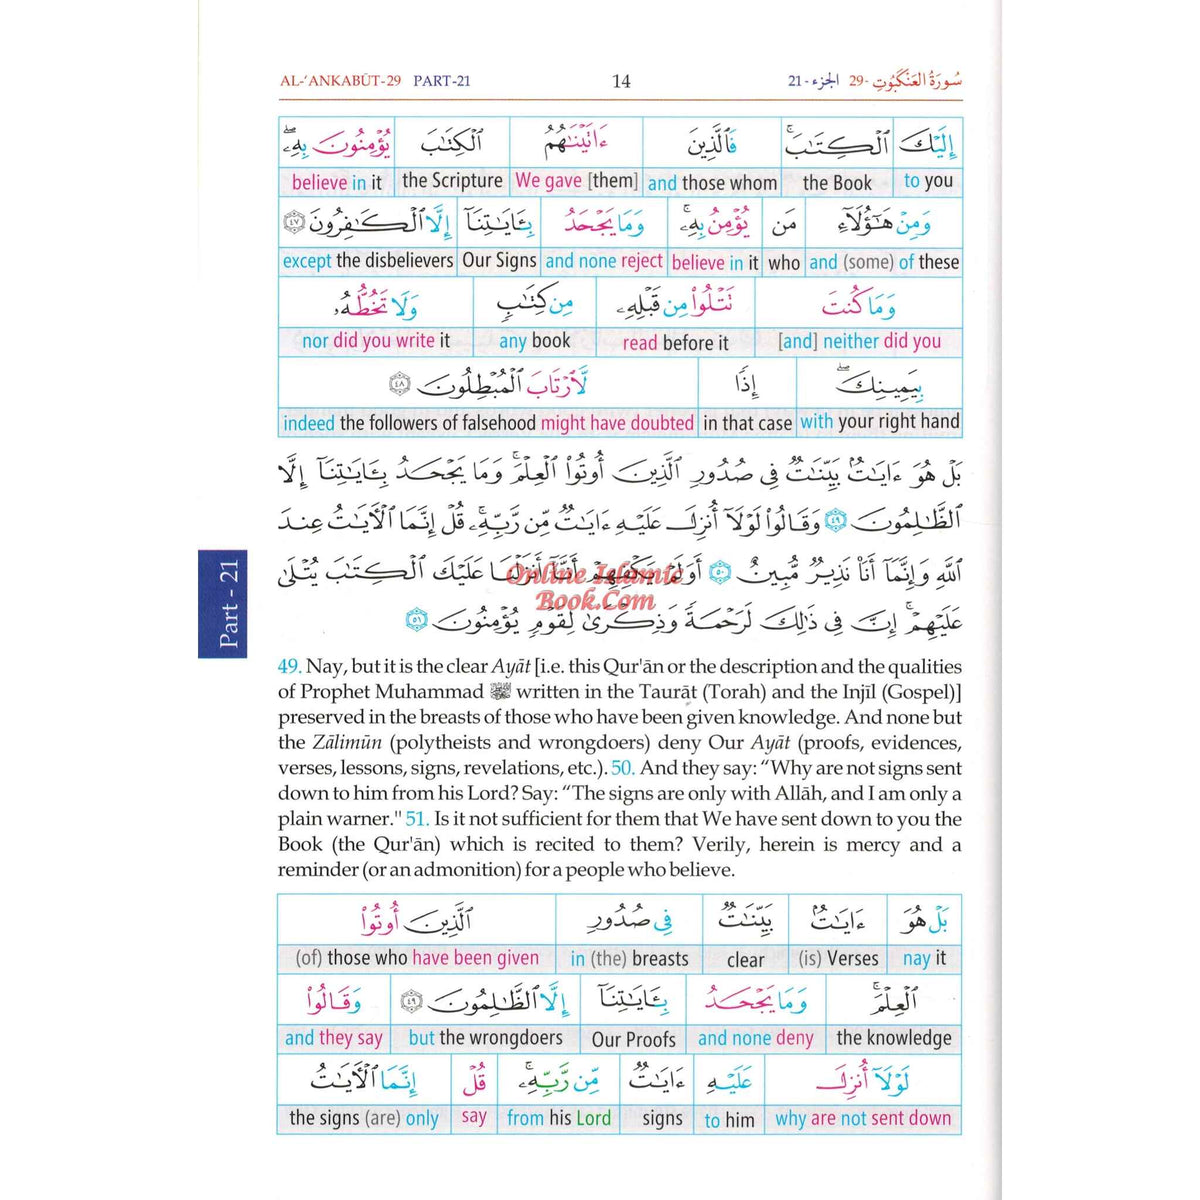 AL-‘ANKABŪT-29 PART-21 14 الجزء - 21 سُورَةُ العَنْكَبُوتِ -29
إِلَيْكَ ٱلْكِتَٰبَ ۚ فَٱلَّذِينَ ءَاتَيْنَٰهُمُ ٱلْكِتَٰبَ يُؤْمِنُونَ بِهِۦ ۖ
believe in it the Scripture We gave [them] and those whom the Book to you
وَمِنْ هَٰٓؤُلَآءِ مَن يُؤْمِنُ بِهِۦ ۚ وَمَا يَجْحَدُ بِـَٔايَٰتِنَآ إِلَّا ٱلْكَٰفِرُونَ ٤٧
except the disbelievers Our Signs and none reject believe in it who and (some) of these
وَمَا كُنتَ تَتْلُوا۟ مِن قَبْلِهِۦ مِن كِتَٰبٍ وَلَا تَخُطُّهُۥ
nor did you write it any book read before it [and] neither did you
بِيَمِينِكَ ۖ إِذًا لَّٱرْتَابَ ٱلْمُبْطِلُونَ ٤٨
indeed the followers of falsehood might have doubted in that case with your right hand
بَلْ هُوَ ءَايَٰتٌۢ بَيِّنَٰتٌ فِى صُدُورِ ٱلَّذِينَ أُوتُوا۟ ٱلْعِلْمَ ۚ وَمَا يَجْحَدُ بِـَٔايَٰتِنَآ إِلَّا
ٱلظَّٰلِمُونَ ٤٩ وَقَالُوا۟ لَوْلَآ أُنزِلَ عَلَيْهِ ءَايَٰتٌ مِّن رَّبِّهِۦ ۚ قُلْ إِنَّمَا ٱلْءَايَٰتُ عِندَ
ٱللَّهِ وَإِنَّمَآ أَنَا۠ نَذِيرٌ مُّبِينٌ ٥٠ أَوَلَمْ يَكْفِهِمْ أَنَّآ أَنزَلْنَا عَلَيْكَ ٱلْكِتَٰبَ يُتْلَىٰ
Online Islamic
Book.Com
عَلَيْهِمْ ۚ إِنَّ فِى ذَٰلِكَ لَرَحْمَةً وَذِكْرَىٰ لِقَوْمٍ يُؤْمِنُونَ ٥١
Part - 21
49. Nay, but it is the clear Ayāt [i.e. this Qur'ān or the description and the qualities
of Prophet Muhammad ﷺ written in the Taurāt (Torah) and the Injīl (Gospel)]
preserved in the breasts of those who have been given knowledge. And none but
the Zālimūn (polytheists and wrongdoers) deny Our Ayāt (proofs, evidences,
verses, lessons, signs, revelations, etc.). 50. And they say: “Why are not signs sent
down to him from his Lord? Say: “The signs are only with Allāh, and I am only a
plain warner." 51. Is it not sufficient for them that We have sent down to you the
Book (the Qur'ān) which is recited to them? Verily, herein is mercy and a
reminder (or an admonition) for a people who believe.
بَلْ هُوَ ءَايَٰتٌۢ بَيِّنَٰتٌ فِى صُدُورِ ٱلَّذِينَ أُوتُوا۟
(of) those who have been given in (the) breasts clear (is) Verses nay it
ٱلْعِلْمَ ۚ وَمَا يَجْحَدُ بِـَٔايَٰتِنَآ إِلَّا ٱلظَّٰلِمُونَ ٤٩ وَقَالُوا۟
and they say but the wrongdoers Our Proofs and none deny the knowledge
لَوْلَآ أُنزِلَ عَلَيْهِ ءَايَٰتٌ مِّن رَّبِّهِۦ ۚ قُلْ إِنَّمَا ٱلْءَايَٰتُ
the signs (are) only say from his Lord signs to him why are not sent down